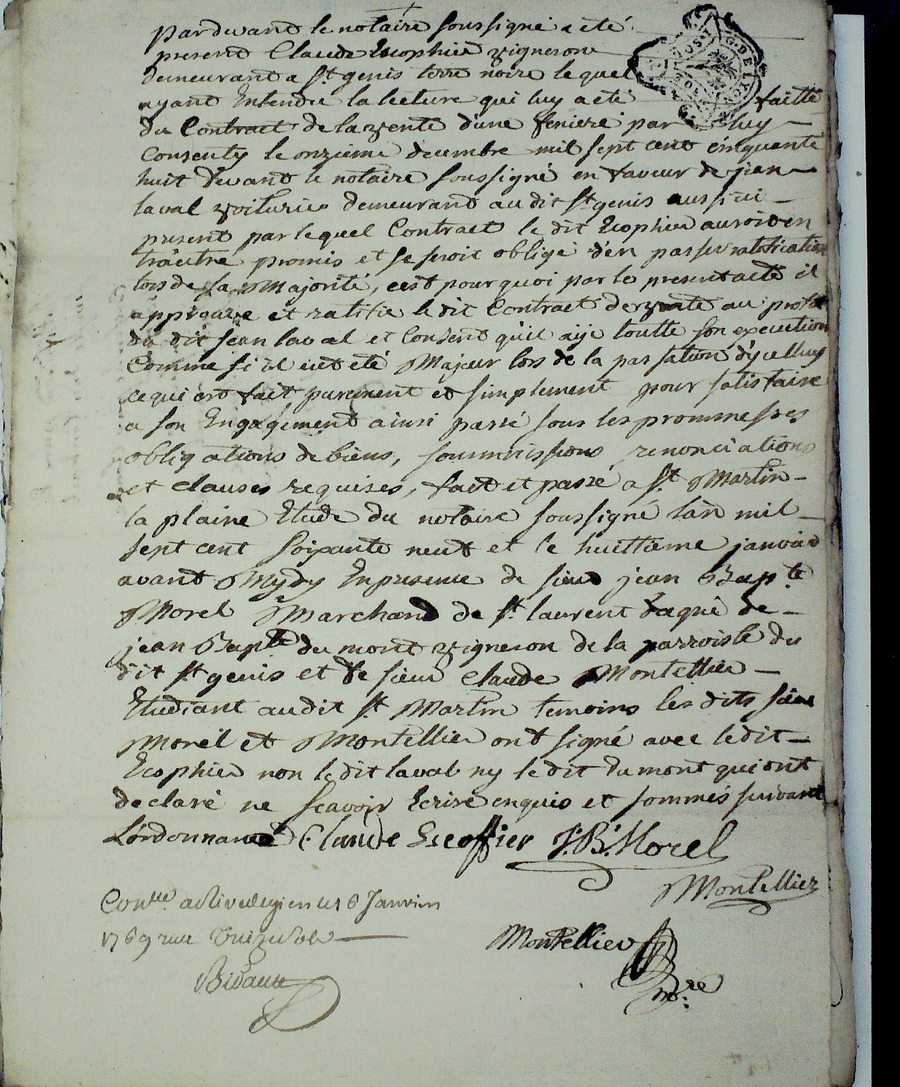 pardevant le notaire soussigné a eté
present Claude Escophier vigneron
demeurant a St genis terre noire lequel
ayant Entendu la lecture qui luy a eté faitte
du Contract de la vente d'une feniere par luy
Consenty le onzieme decembre mil sept cent cinquante
huit devant le notaire soussigné en faveur de jean
laval voiturier demeurant audit St genis aussi ici
present par lequel Contract le dit Ecophier auroit en
tr'autre promis et se seroit obligé d'en passer ratiffication
lors de sa Majorité, c'est pourquoi par le present acte il
approuve et ratifie le dit Contract de vente au profit
du dit jean laval et Consent qu'il aije toutte son execution
Comme si il eut eté Majeur lors de la passation d'ycelluy
ce qui est fait purement et simplement pour satisfaire
a son Engagement ainsi passé sous les prommesses
obligations de biens, soummissions renonciations
et clauses requises, fait et passé a St Martin
la plaine Etude du notaire soussigné l'an mil
sept cent soixante neuf et le huittieme janvier
avant Mydy En presence de sieur jean Bapte
Morel Marchand de St laurent dagni de
jean Bapte du mont vigneron de la parroisse du
dit St genis et de sieur Claude Montellier
Etudiant audit St Martin temoins les dits sieurs
Morel et Montellier ont signé avec le dit
Ecophier non le dit laval ny le dit du mont qui ont
declaré ne scavoir Ecrire enquis et sommés suivant
Lordonnance Claude Escoffier J.B. Morel
Montellier
Conlle a Rivedegier le 16 Janvier
1769 reçu treize sols
Montellier
nre